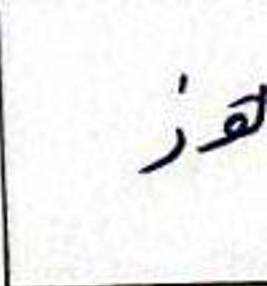 هوز